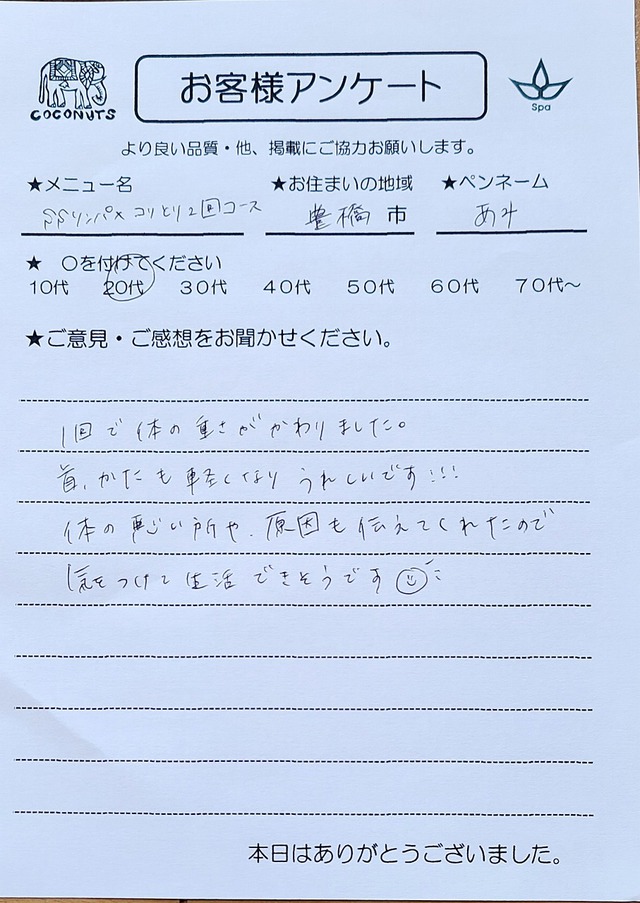 COCONUTS
お客様アンケート
Spa
より良い品質・他、掲載にご協力お願いします。
★メニュー名 ★お住まいの地域 ★ペンネーム
SSリンパ×コリとり2回コース 豊橋 市 あみ
★ ○を付けてください
10代 20代 30代 40代 50代 60代 70代〜
★ご意見・ご感想をお聞かせください。
1回で体の重さがかわりました。
首、かたも軽くなりうれしいです!!!
体の悪い所や、原因も伝えてくれたので
気をつけて生活できそうです
本日はありがとうございました。